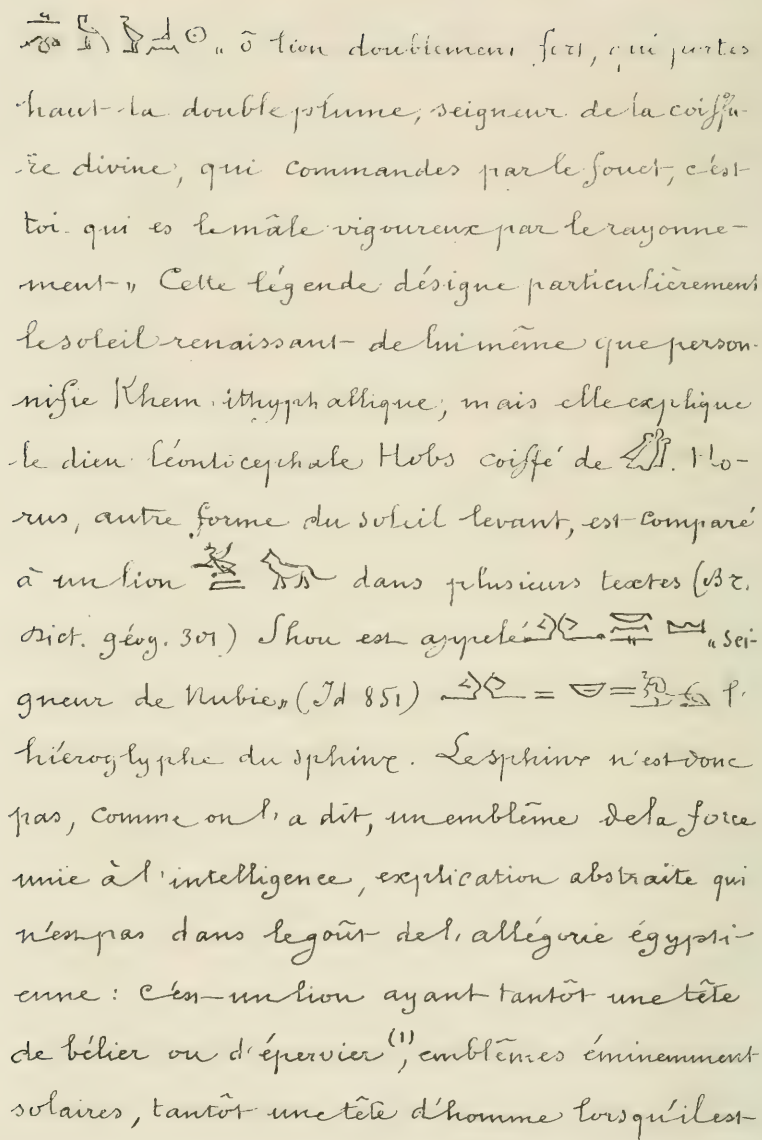 „ ô lion doublement fort, qui portes
haut la double plume, seigneur de la coiffu-
re divine, qui commandes par le fouet, c'est
toi qui es le mâle vigoureux par le rayonne-
ment „ Cette légende désigne particulièrement
le soleil renaissant de lui même que person-
nifie Khem ithyphallique; mais elle explique
le dieu léontocéphale Hobs coiffé de . Ho-
rus, autre forme du soleil levant, est comparé
à un lion dans plusieurs textes (Br.
Dict. géog. 301) Shou est appelé „ sei-
gneur de Nubie „ (Id 851) = = l'
hiéroglyphe du sphinx. Le sphinx n'est donc
pas, comme on l'a dit, un emblême de la force
unie à l'intelligence, explication abstraite qui
n'est pas dans le goût de l'allégorie égypti-
enne : c'est un lion ayant tantôt une tête
de bélier ou d'épervier (1), emblêmes éminemment
solaires, tantôt une tête d'homme lorsqu'il est